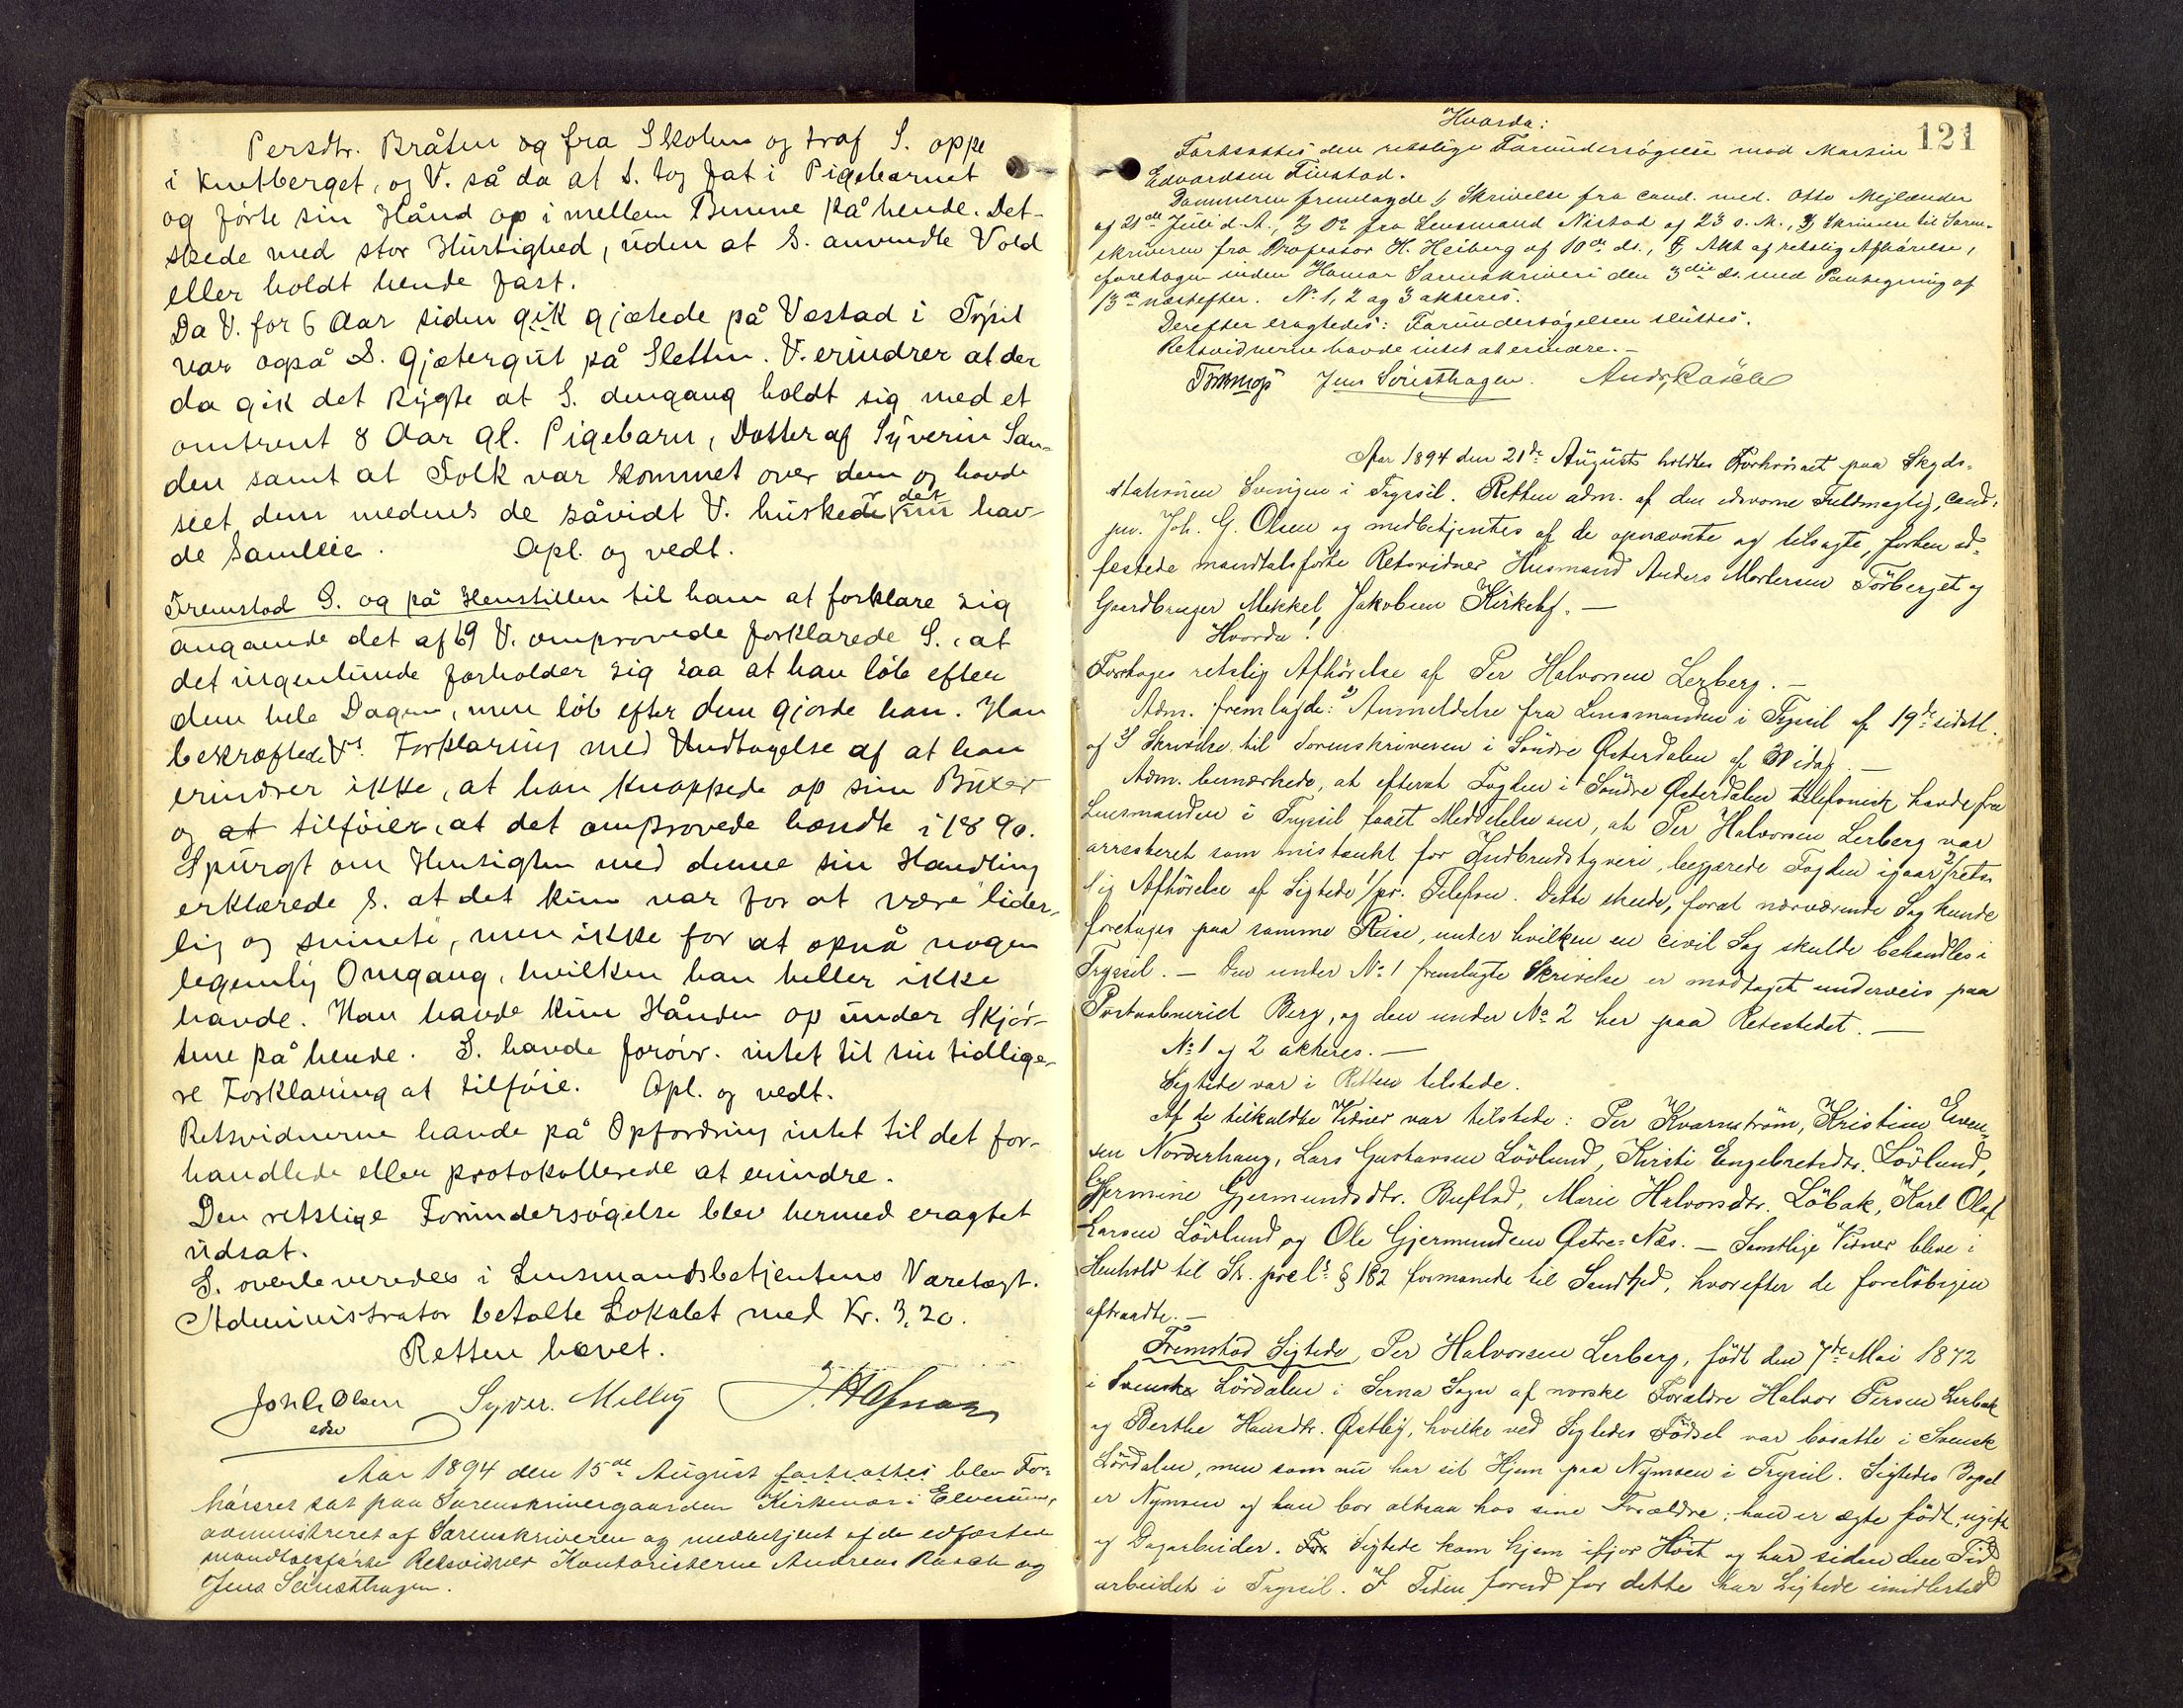 Persdtr. Bråten og fra Skolen og traf S. oppe
i Knetberget, og V. så da at S. tog fat i Pigebarnet
og förte sin Hånd op imellem Benene på hende. Det
skede med stor Hurtighed, uden at S. anvendte Vold
eller holdt hende fast.
Da V. for 6 Aar siden gik gjætede på Væstad i Trysil
var også S. gjætergut på Sletten. V. erindrer at der
da gik det Rygte at S. dengang holdt sig med et
omtrent 8 Aar gl. Pigebarn, Datter af Syverin San-
den samt at Folk var kommet over dem og havde
seet dem medens de såvidt V. huskede det hav-
de Samleie. Opl. og vedt.
Fremstod S. og på Henstillen til ham at forklare sig
angaaende det af 69 V. omprovede forklarede S., at
det ingenlunde forholder sig saa at han löb efter
dem hele Dagen, men löb efter dem gjorde han. Han
bekræftede Vs Forklaring med Undtagelse af at han
erindrer ikke, at han knappede op sine Buxer
og at tilföier, at det omprovede hændte i 1890.
Spurgt om Hensigten med denne sin Handling
erklærede S. at det kun var for at være lider-
lig og svinete, men ikke for at opnå nogen
legemlig Omgang, hvilken han heller ikke
havde. Han havde kun Hånden op under Skjör-
tene på hende. S. havde foröv. intet til sin tidlige-
re Forklaring at tilföie. Opl. og vedt.
Retsvidnerne havde på Opfordring intet til det for-
handlede eller protokollerede at erindre.
Den retslige Forundersögelse blev hermed eragtet
udsat.
S. overleveredes i Lensmandsbetjentens Varetægt.
Administrator betalte Lokalet med Kr. 3,20.
Retten hævet.
Joh G Olsen Syver. Melby
edsv
Aar 1894 den 15de August fortsattes blev For-
hörsret sat paa Sorenskrivergaarden Kirkenær i Elverum,
administreret af Sorenskriveren og medbetjent af de edfæstede
mandtalsförte Retsvidner Kontoristerne Andreas Rasch og
Jens Seiersthagen.
121
Hvorda:
Fortsattes den retslige Forundersögelse mod Martin
Edvardsen Finstad.
Dommeren fremlagde 1, Skrivelse fra cand. med. Otto Mejlænder
af 21de Juli d. A., 2, Do fra Lensmand Nistad af 23 s. M., 3, Skrivelse til Soren-
skriveren fra Professor H. Heiberg af 10de ds., 4, Akt af retslig Afhörelse,
foretagen inden Hamar Sorenskriveri den 3die ds. med Paategning af
13de næstefter. No 1, 2 og 3 akteres.
Derefter eragtedes: Forundersögelsen sluttes.
Retsvidnerne havde intet at erindre. —
Jens Seiersthagen. Andr. Rasch
Aar 1894 den 21de August holdtes Forhörsret paa Skyds-
stationen Svingen i Trysil. Retten adm. af den edsvorne Fuldmægtig, cand.
jur. Joh. G. Olsen og medbetjentes af de opnævnte og tilsagte, forhen ed-
fæstede mandtalsförte Retsvidner Husmand Anders Mortensen Törberget og
Gaardbruger Mekkel Jakobsen Kirkebg. —
Hvorda!
Foretages retslig Afhörelse af Per Halvorsen Lerberg. —
Adm. fremlagde: Anmeldelse fra Lensmanden i Trysil af 19de sidstl.
af Skrivelse til Sorenskriveren i Söndre Österdalen af idag. —
Adm. bemærkede, at efterat Fogden i Söndre Österdalen telefonisk havde fra
Lensmanden i Trysil faaet Meddelelse om, at Per Halvorsen Lerberg var
arresteret som mistænkt for Indbrudstyveri, begjærede Fogden igaar 2/rets-
lig Afhörelse af Sigtede 1/pr. Telefon. Dette skede, forat nærværende Sag kunde
foretages paa samme Reise, under hvilken en civil Sag skulde behandles i
Trysil. — Den under No 1 fremlagte Skrivelse er modtaget underveis paa
Postaabneriet Berg, og den under No 2 her paa Retsstedet. —
No 1 og 2 akteres. —
Sigtede var i Retten tilstede.
Af de tilkaldte Vidner var tilstede: Per Kvarnström, Kristian Even-
sen Norderhaug, Lars Gustavsen Lövlund, Kirsti Engebretsdtr. Lövlund,
Gjermine Gjermundsdtr. Buflod, Marie Halvorsdtr. Löbak, Karl Olaf
Larsen Lövlund og Ole Gjermundsen Östre-Næs. — Samtlige Vidner bleve i
Henhold til St. prcl's § 182 formanede til Sandhed, hvorefter de foreløbigen
aftraadte. —
Fremstod Sigtede Per Halvorsen Lerberg, födt den 7de Mai 1872
i Svenske Lördalen i Serna Sogn af norske Forældre Halvor Persen Lerbak
og Berthe Hansdtr. Østby, hvilke ved Sigtedes Födsel var bosatte i Svensk
Lördalen, men som nu har sit Hjem paa Nymoen i Trysil. Sigtedes Bopæl
er Nymoen og han bor altsaa hos sine Forældre; han er ægte födt, ugift
og Dagarbeider. For Sigtede kom hjem ifjor Höst og har siden den Tid
arbeidet i Trysil. I Tiden forud for dette har Sigtede imidlertid